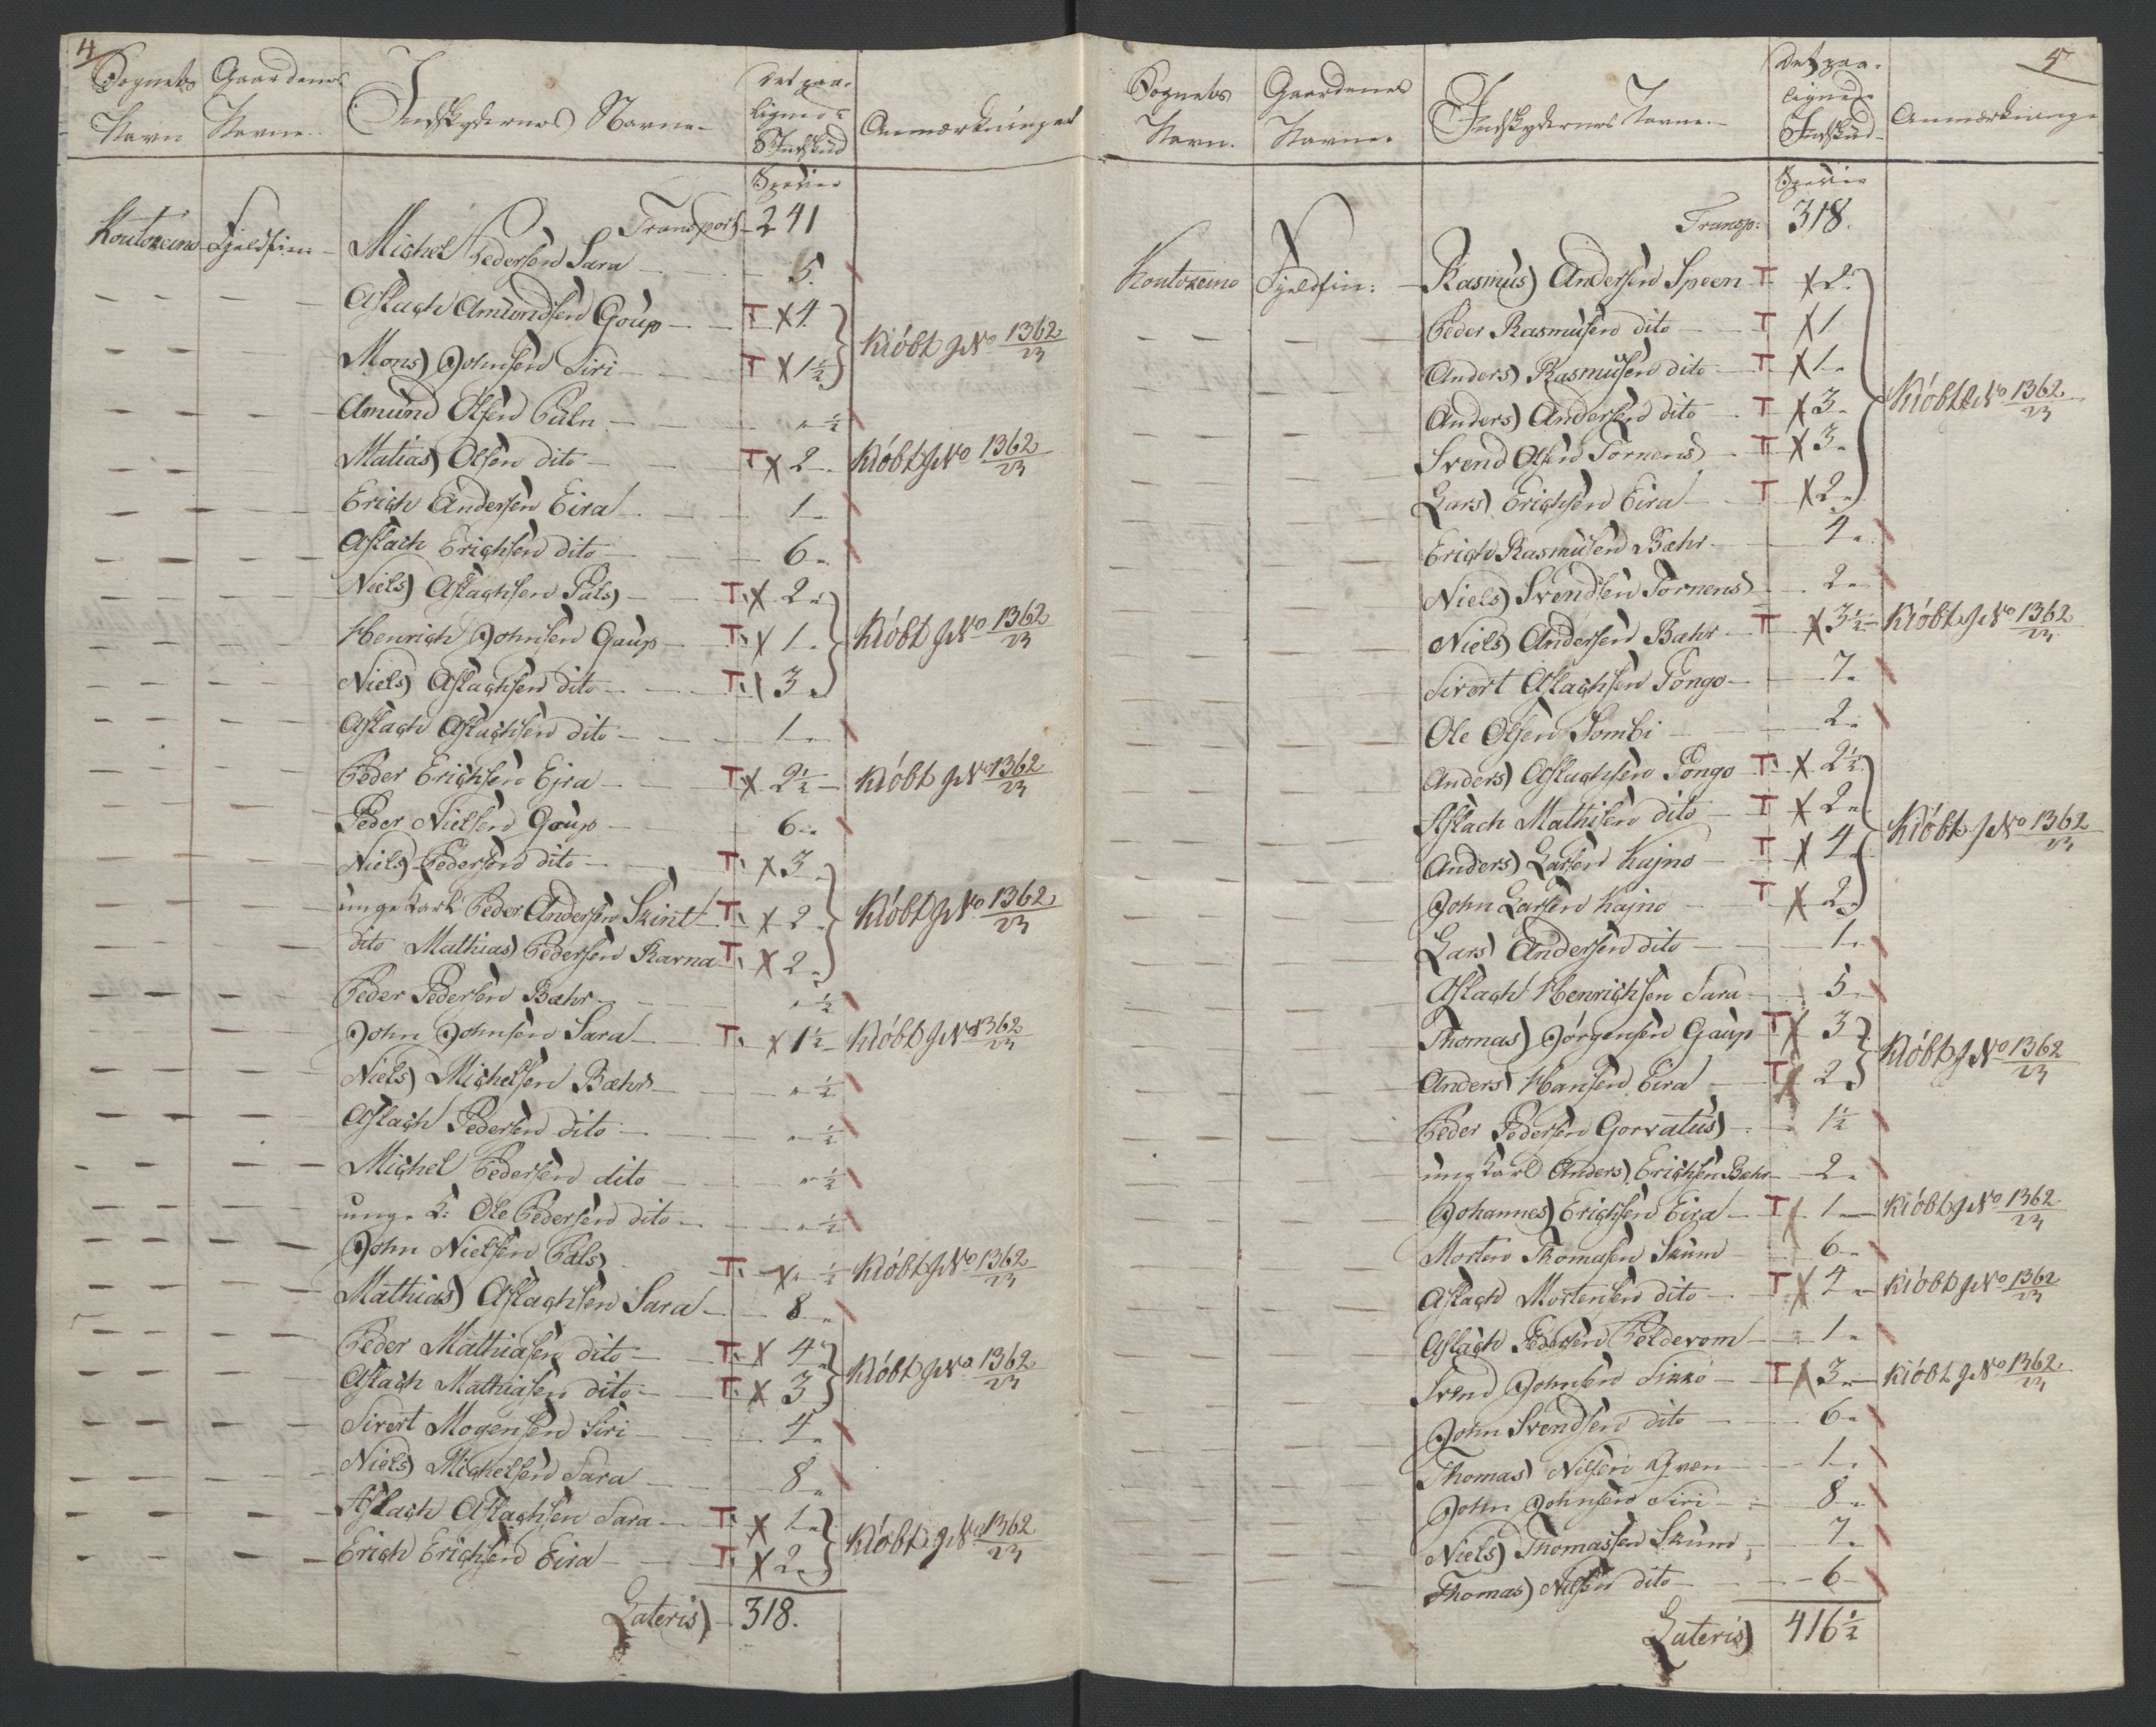 4
Sognets Navn
Gaardenes Navne
Indskydernes Navne
Det paalignede Indskud
Anmærkninger
Specier
Transport 241
Koutokeino Fjeldfin Michel Pedersen Sara 5.
Aslach Amundsen Goup T. X 4
Mons Johnsen Siri T X 1½
Kiöbt JNo 1362/23
Amund Olsen Puln " ½
Matias Olsen dito T X 2 Kiöbt JNo 1362/23
Erich Andersen Eira 1
Aslach Erichsen dito 6
Niels Aslachsen Pals T. X 2
Henrich Johnsen Gaup T. X 1
Kiöbt JNo 1362/23
Niels Aslachsen dito T. 3
Aslach Aslachsen dito 1
Peder Erichsen Ejra T. X 2½ Kiöbt JNo 1362/23
Peder Nielsen Gaup 6
Niels Pedersen dito T. X 3
unge Karl Peder Andersen Skint T. X 2 Kiöbt JNo 1362/23
dito Mathias Pedersen Ravna T. X 2
Peder Pedersen Bæhr " ½
John Johnsen Sara T. X 1½ Kiöbt JNo 1362/23
Niels Michelsen Bæhr " ½
Aslach Pedersen dito " ½
Michel Pedersen dito " ½
unge K: Ole Pedersen dito " ½
John Nielsen Pals T. X " ½ Kiöbt JNo 1362/23
Mathias Aslachsen Sara 8
Peder Mathiasen dito T. X 4
Kiöbt JNo 1362/23
Aslach Mathiasen dito T. X 3
Sivert Mogensen Siri 4
Niels Michelsen Sara 8
Aslach Aslachsen Sara T. X 1
Kiöbt JNo 1362/23
Erich Erichsen Eira T. X 2
Lateris 318.
5
Sognets Navn.
Gaardenes Navne
Indskydernes Navne
Det paalignede Indskud
Anmærkninge
Specie
Transp: 318.
Koutokeino Fjeldfin: Rasmus Andersen Speen T X 2
Peder Rasmusen dito T X 1
Anders Rasmusen dito T X 1
Anders Andersen dito T X 3
Kiöbt JNo 1362/23
Svend Olsen Tornens T X 3
Lars Erichsen Eira T X 2
Erich Rasmusen Bæhr 4
Niels Svendsen Tornens 2
Niels Andersen Bæhr T X 3½ Kiöbt JNo 1362/23
Sivert Aslachsen Pongo 7
Ole Olsen Sombi 2
Anders Aslachsen Pongo T. X 2½
Aslach Mathisen dito T X 2
Kiöbt JNo 1362/23
Anders Larsen Kajno T X 4
John Larsen Kajno T X 2
Lars Andersen dito 1
Aslach Henrichsen Sara 5
Thomas Jörgensen Gaup T X 3
Kiöbt JNo 1362/23
Anders Hansen Eira T X 2
Peder Pedersen Gorvatus 1½
ung Karl Anders Erichsen Bæhr 2
Johannes Erichsen Eira T 1 Kiöbt JNo 1362/23
Morten Thomasen Skum 6
Aslach Mortensen dito T X 4 Kiöbt JNo 1362/23
Aslach Pedersen Pelderom 1
Svend Johnsen Sikko T X 3 Kiöbt JNo 1362/23
John Svendsen dito 6
Thomas Nilsen Qven 1
John Johnsen Siri 8
Niels Thomassen Skum 7
Thomas Nilsen dito 6
Lateris 416½